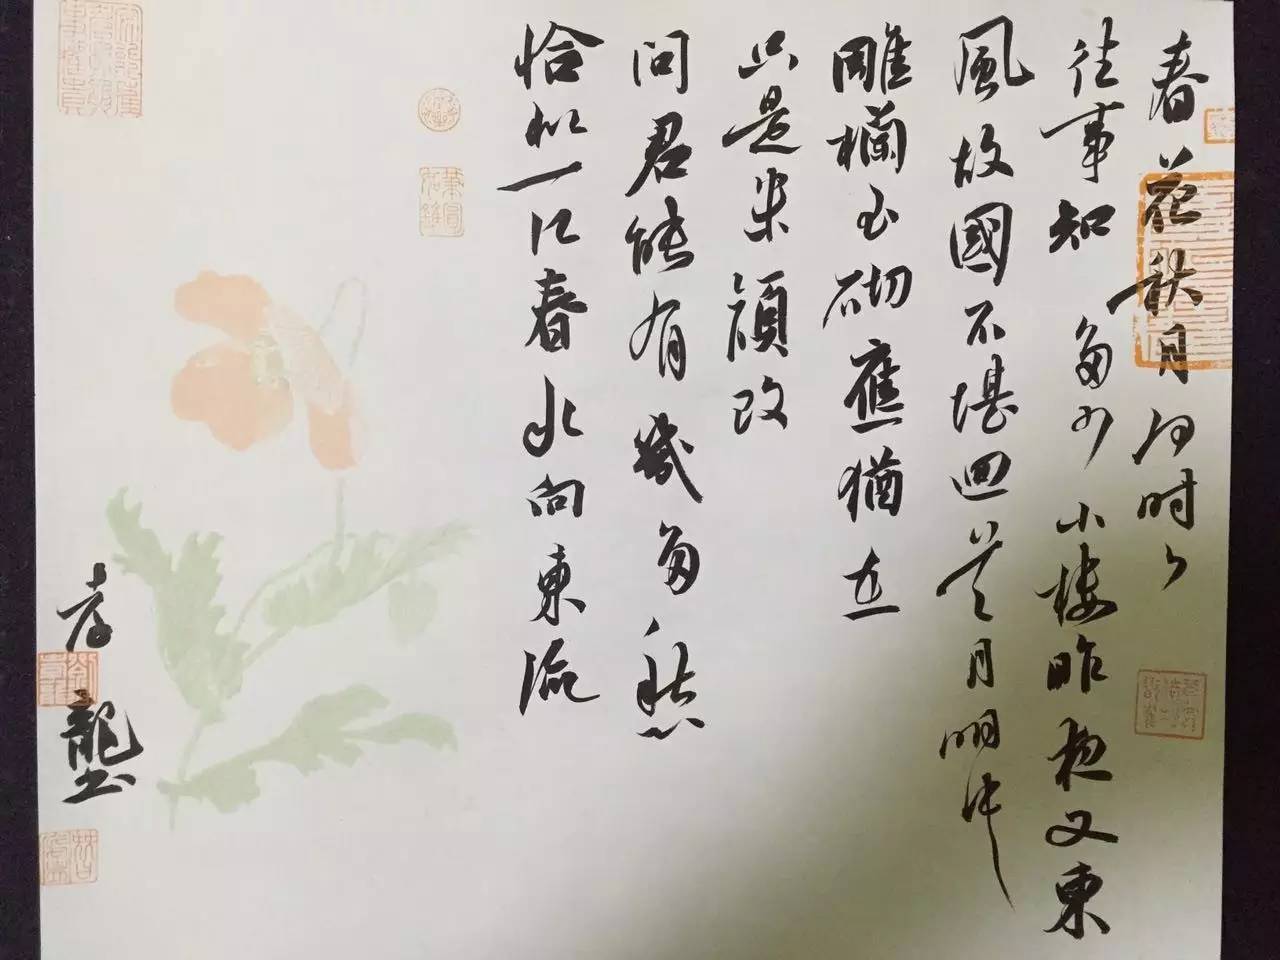 春花秋月何时了
往事知多少小楼昨夜又東
風故國不堪回首月明中
雕欄玉砌應猶在
只是朱顔改
問君能有幾多愁
恰似一江春水向東流